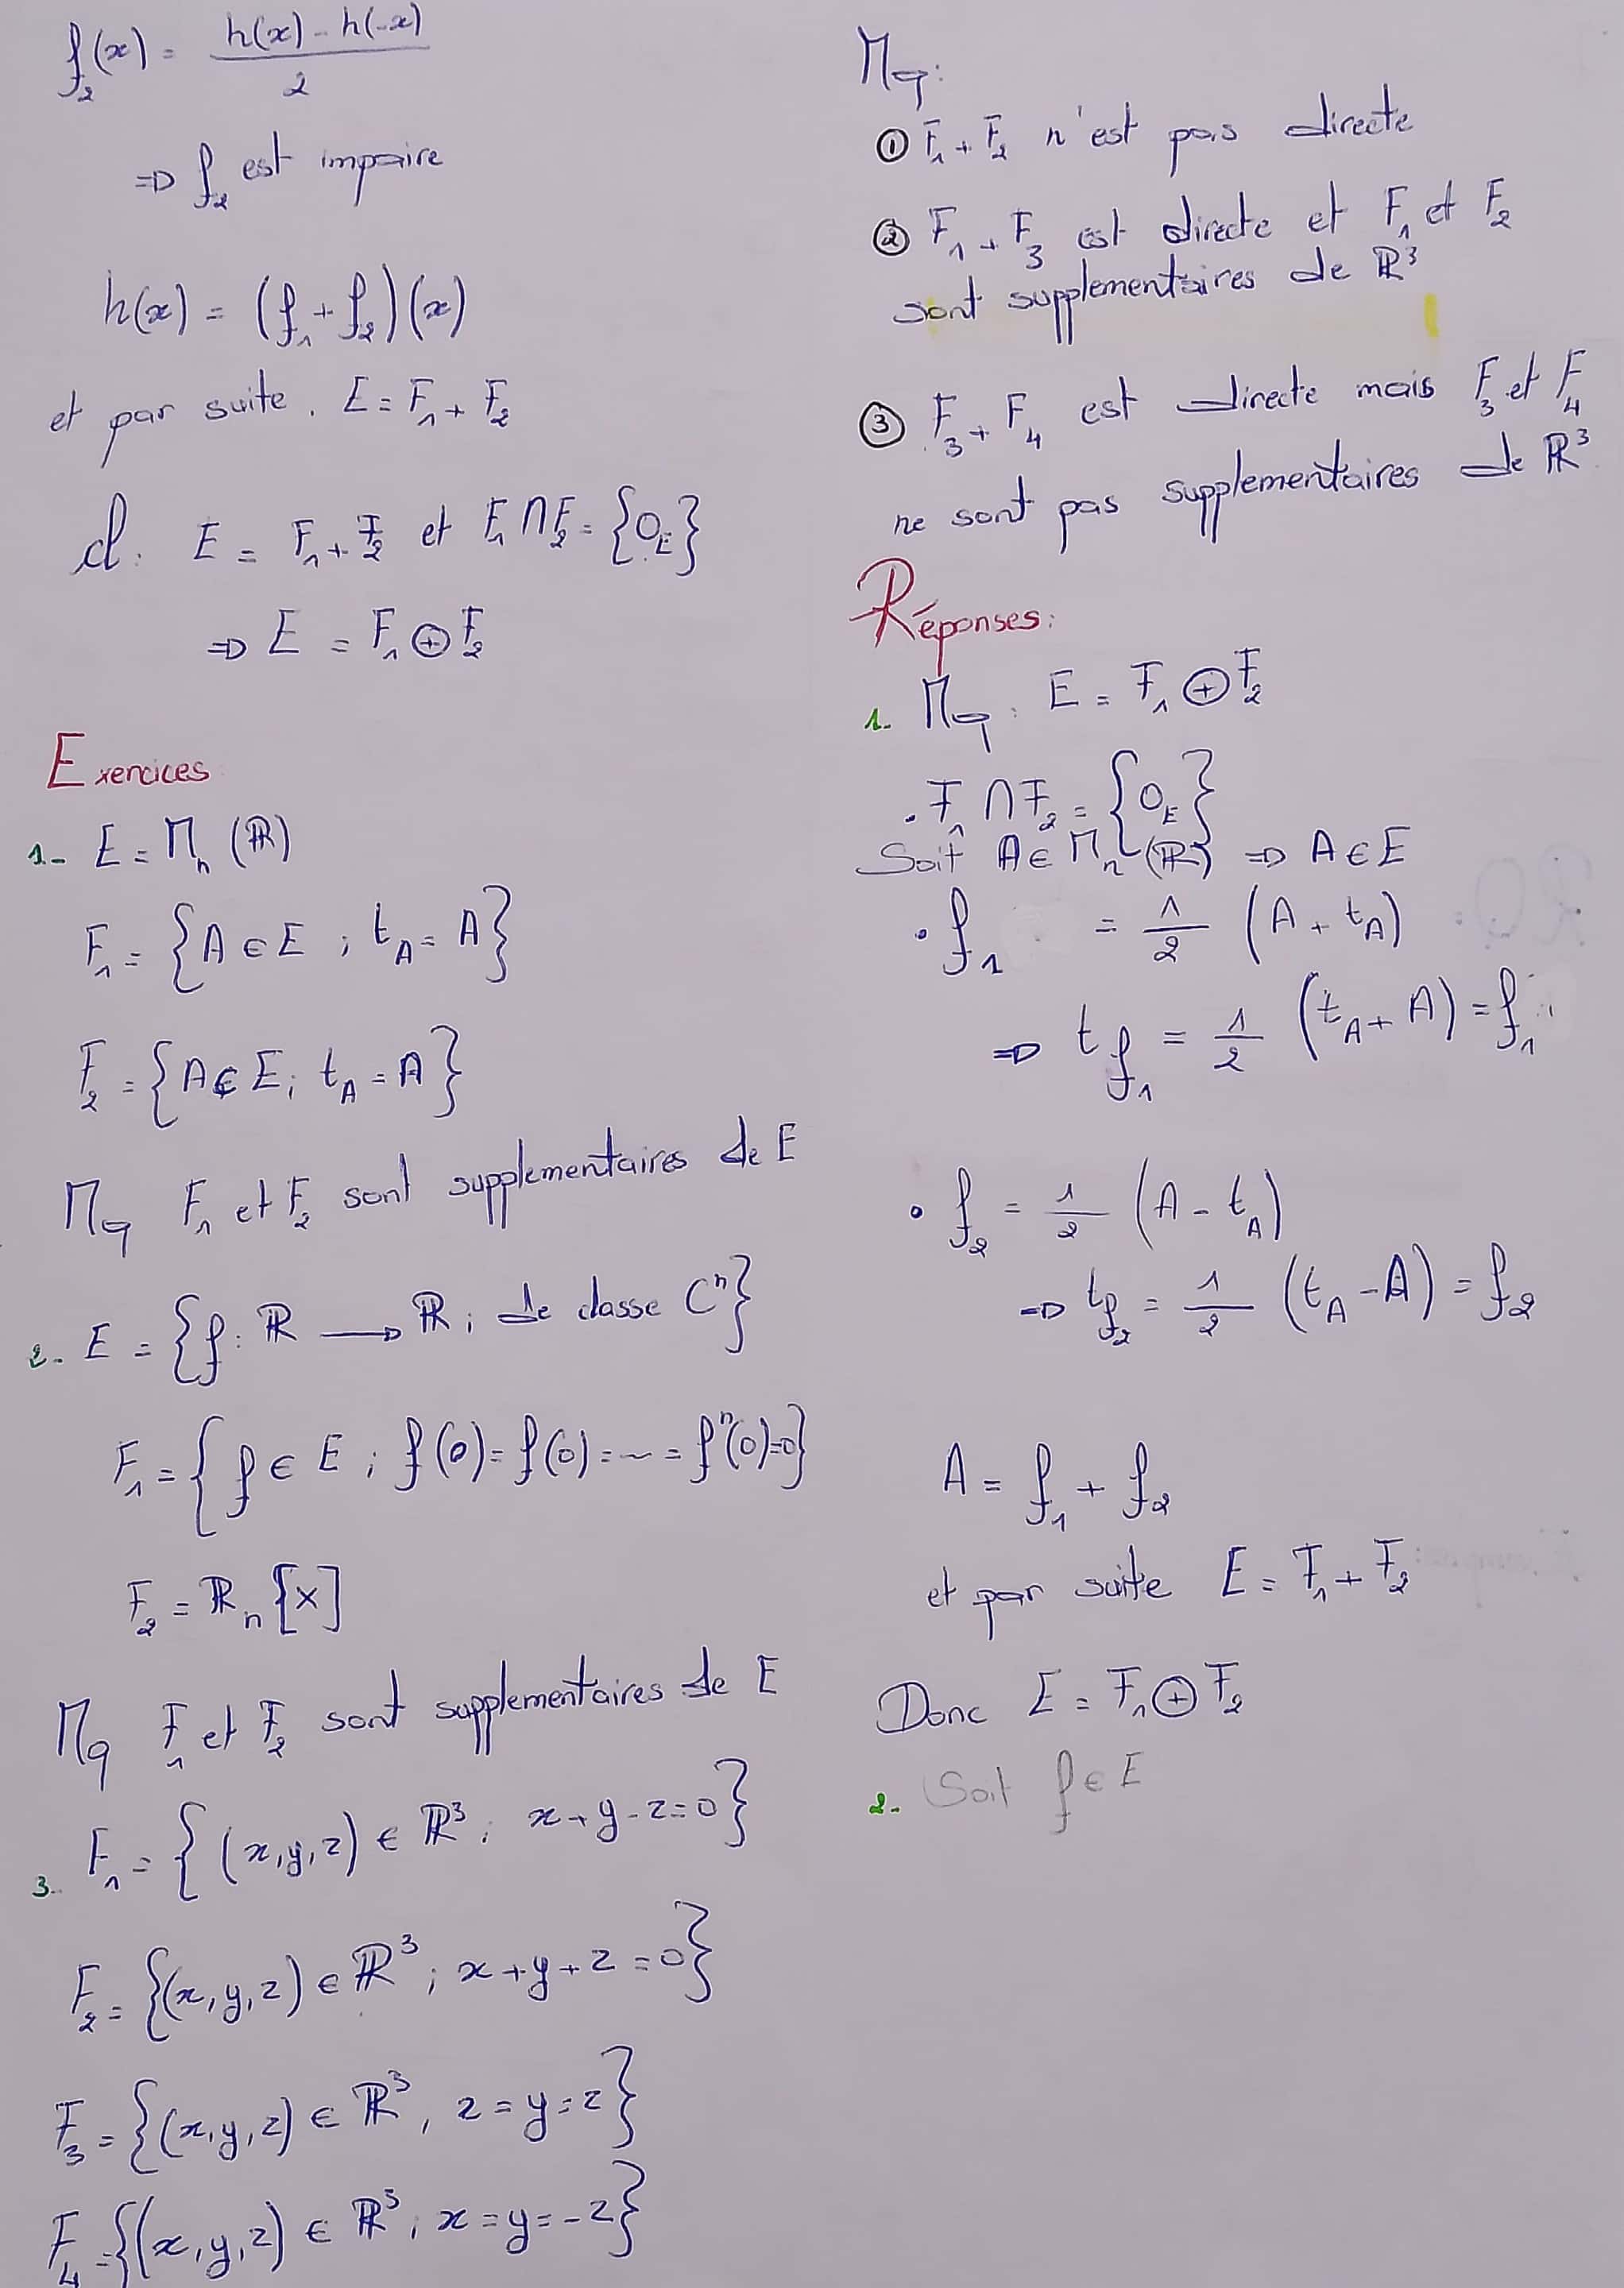 f₂(x) = (h(x) - h(-x)) / 2
⇒ f₂ est impaire
h(x) = (f₁ + f₂)(x)
et par suite. E = F₁ + F₂
cl. E = F₁ + F₂ et F₁ ∩ F₂ = {0_E}
⇒ E = F₁ ⊕ F₂
Exercices
1- E = Mₙ(ℝ)
F₁ = {A ∈ E ; tA = A}
F₂ = {A ∈ E ; tA = A}
Mq F₁ et F₂ sont supplementaires de E
2- E = {f : ℝ → ℝ ; de classe Cⁿ}
F₁ = {f ∈ E ; f(0) = f(0) = -- = fⁿ(0) = 0}
F₂ = ℝₙ[X]
Mq F₁ et F₂ sont supplementaires de E
3- F₁ = {(x,y,z) ∈ ℝ³ ; x + y - z = 0}
F₂ = {(x,y,z) ∈ ℝ³ ; x + y + z = 0}
F₃ = {(x,y,z) ∈ ℝ³, z = y = z}
F₄ = {(x,y,z) ∈ ℝ³ ; x = y = -z}
Mq :
① F₁ + F₂ n'est pas directe
② F₁ + F₃ est directe et F₁ et F₂
sont supplementaires de ℝ³
③ F₃ + F₄ est directe mais F₃ et F₄
ne sont pas supplementaires de ℝ³
Réponses :
1. Mq : E = F₁ ⊕ F₂
. F₁ ∩ F₂ = {0_E}
Soit A ∈ Mₙ(ℝ) ⇒ A ∈ E
• f₁ = 1/2 (A + tA)
⇒ tf₁ = 1/2 (tA + A) = f₁
• f₂ = 1/2 (A - tA)
⇒ tf₂ = 1/2 (tA - A) = f₂
A = f₁ + f₂
et par suite E = F₁ + F₂
Donc E = F₁ ⊕ F₂
2. Soit f ∈ E